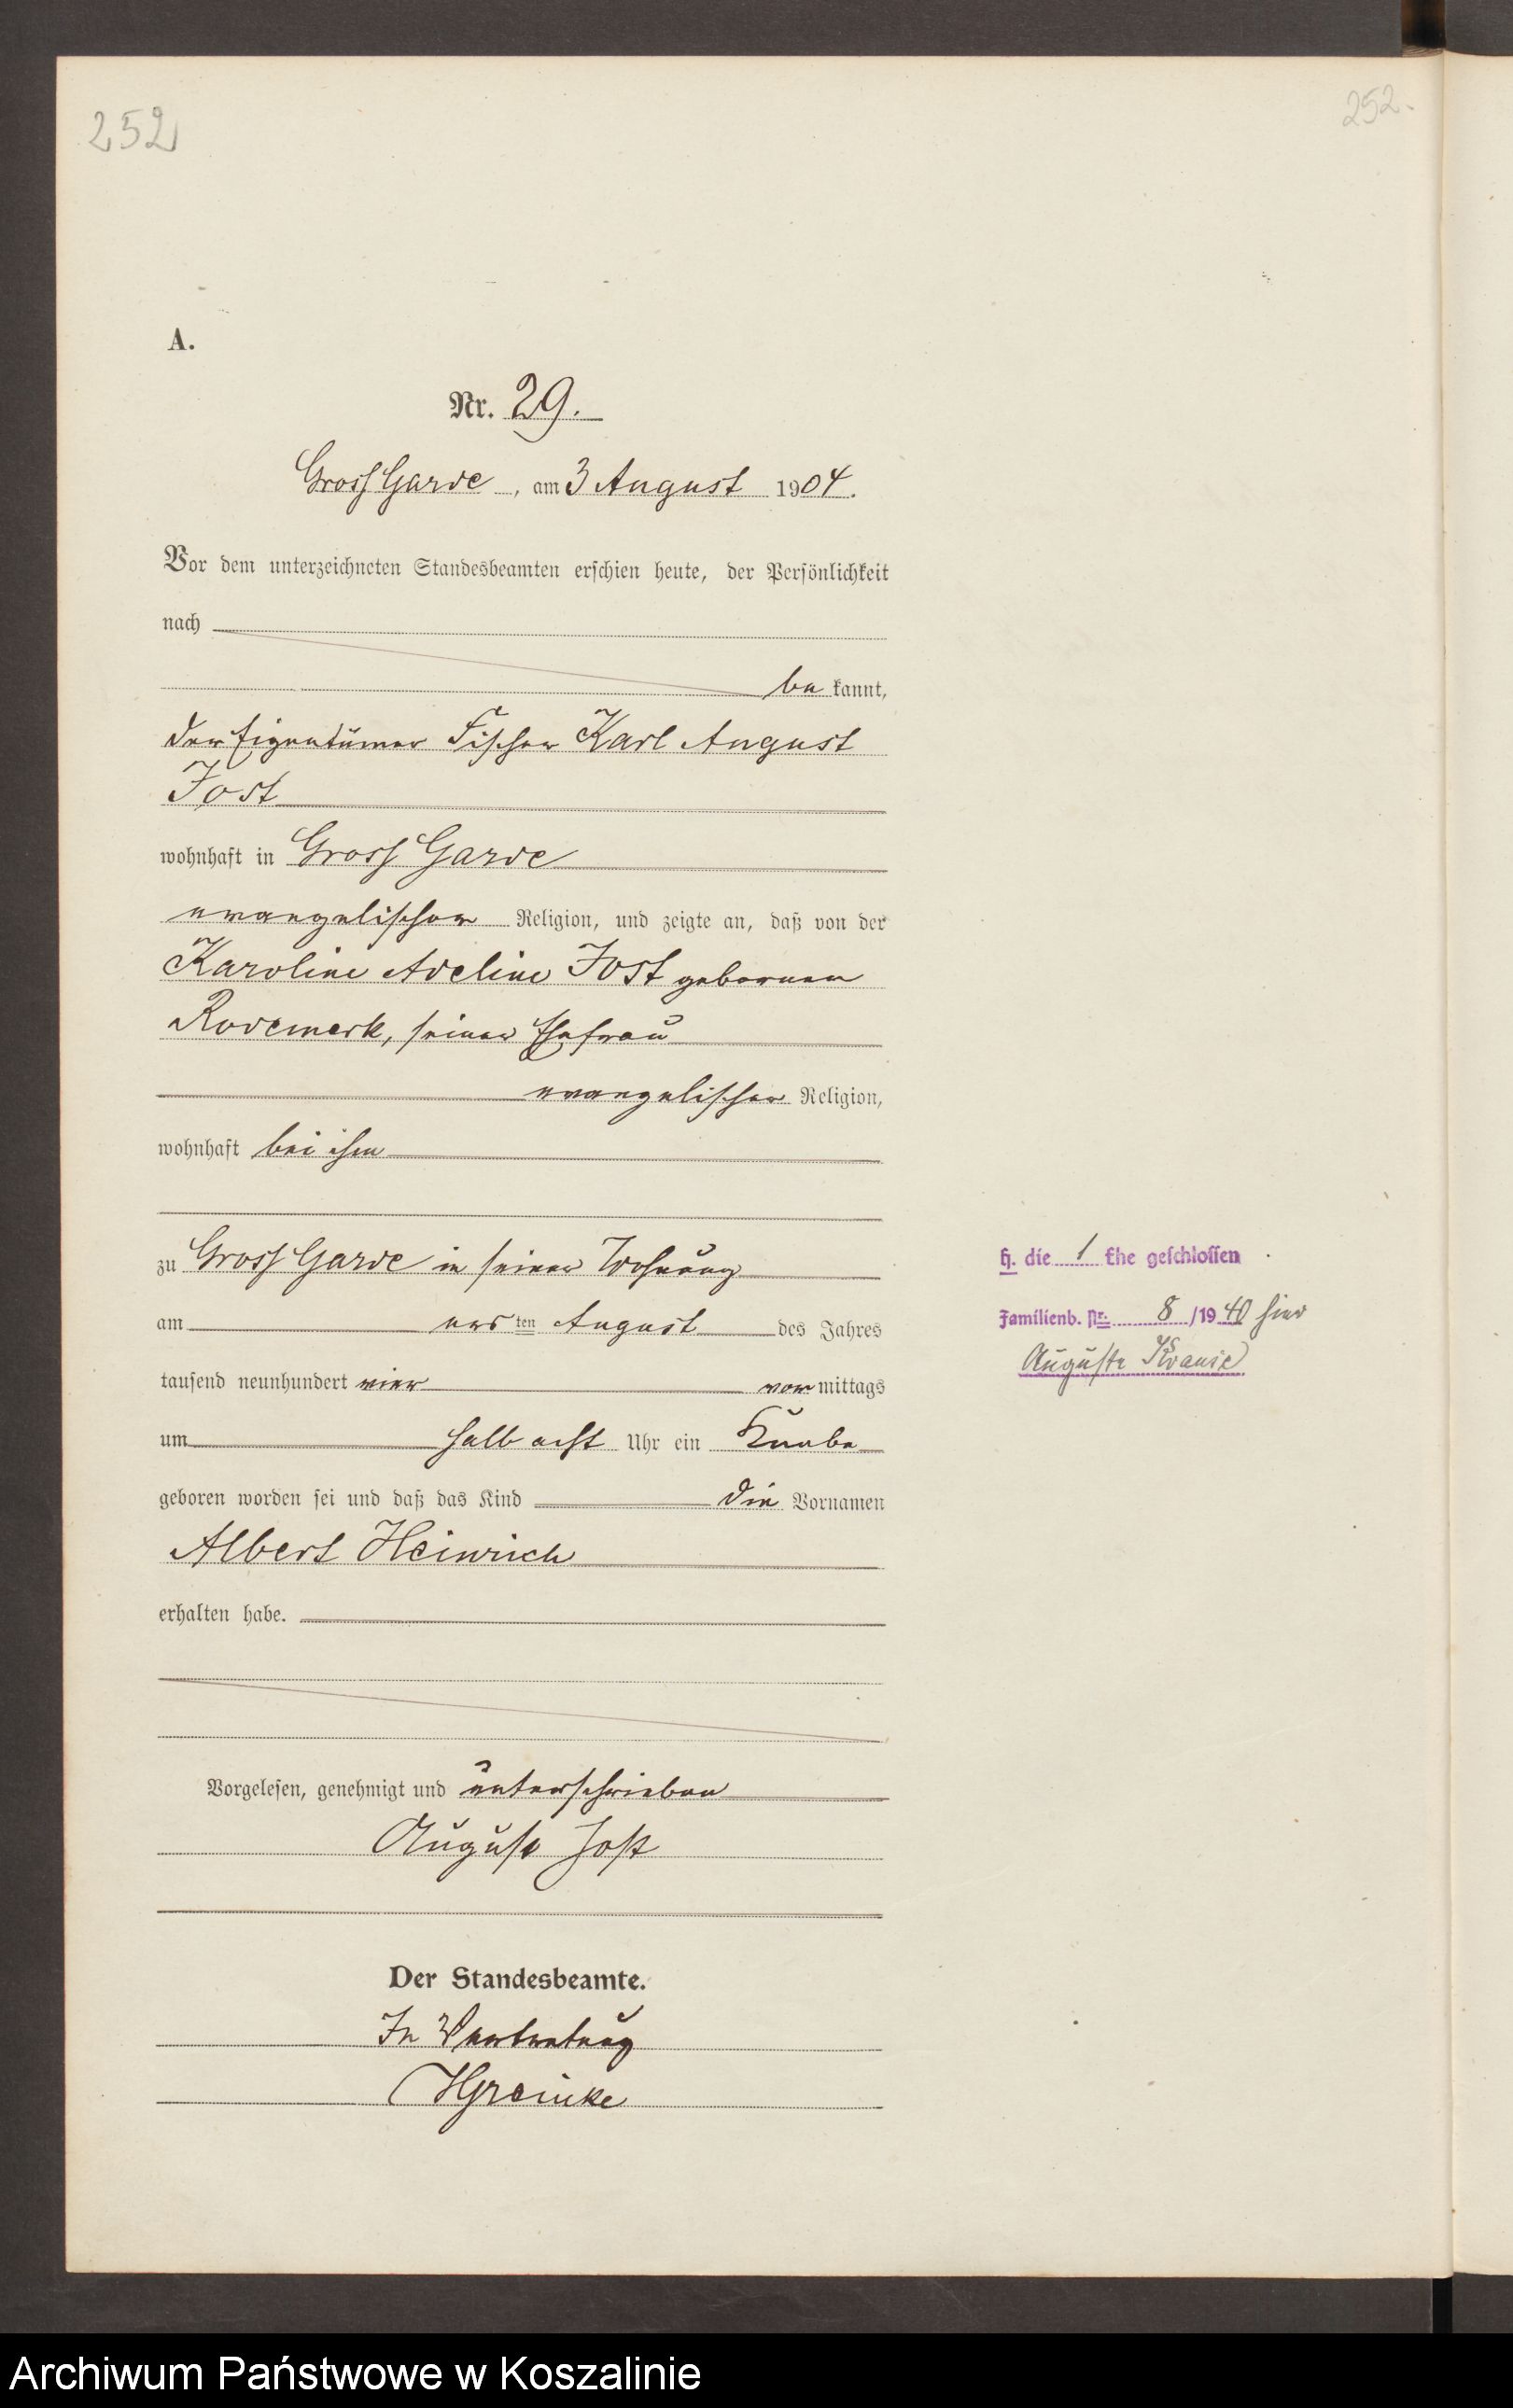 252
252.
A.
Nr. 29.
Gross Garde, am 3 August 1904.
Vor dem unterzeichneten Standesbeamten erschien heute, der Persönlichkeit
nach
be kannt,
der Eigentümer Fischer Karl August
Jost
wohnhaft in Gross Garde
evangelischer Religion, und zeigte an, daß von der
Karoline Adeline Jost geborenen
Rodemerk, seiner Ehefrau
evangelischer Religion,
wohnhaft bei ihm
zu Gross Garde in seiner Wohnung
am ersten August des Jahres
tausend neunhundert vier vor mittags
um halb acht Uhr ein Knabe
geboren worden sei und daß das Kind die Vornamen
Albert Heinrich
erhalten habe.
H. die 1 Ehe geschlossen
Familienb. Nr. 8/1940 hier
Auguste Krause
Vorgelesen, genehmigt und unterschrieben
August Jost
Der Standesbeamte.
In Vertretung
Greinke
Archiwum Państwowe w Koszalinie